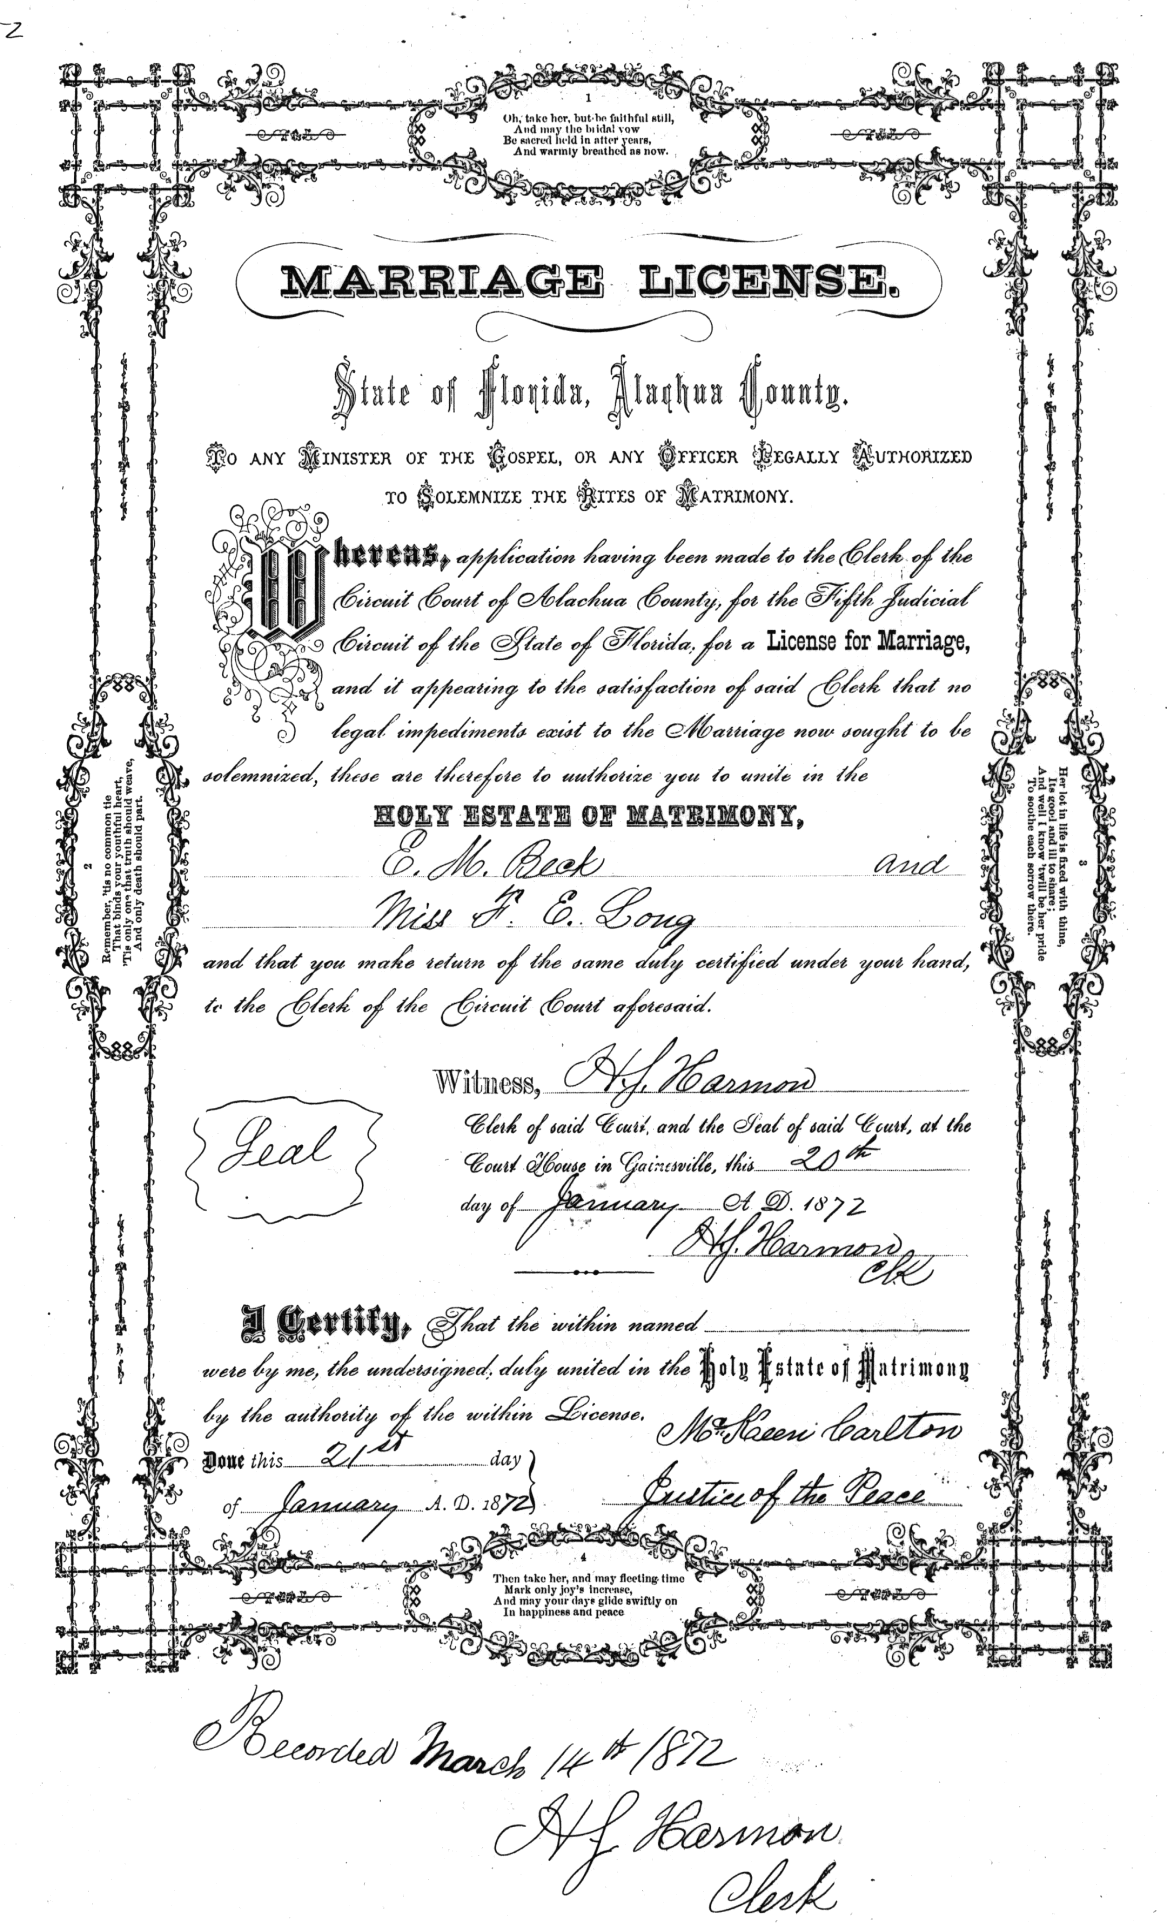 1
Oh, take her, but be faithful still,
And may the bridal vow
Be sacred held in after years,
And warmly breathed as now.
MARRIAGE LICENSE.
State of Florida, Alachua County.
TO ANY MINISTER OF THE GOSPEL, OR ANY OFFICER LEGALLY AUTHORIZED
TO SOLEMNIZE THE RITES OF MATRIMONY.
Whereas, application having been made to the Clerk of the
Circuit Court of Alachua County, for the Fifth Judicial
Circuit of the State of Florida, for a License for Marriage,
and it appearing to the satisfaction of said Clerk that no
legal impediments exist to the Marriage now sought to be
solemnized, these are therefore to authorize you to unite in the
HOLY ESTATE OF MATRIMONY,
E. M. Beck and
Miss F. E. Long
and that you make return of the same duly certified under your hand,
to the Clerk of the Circuit Court aforesaid.
2
Remember, 'tis no common tie
That binds your youthful heart,
'Tis only one that truth should weave,
And only death should part.
3
Her lot in life is fixed with thine,
Its good and ill to share;
And well I know 'twill be her pride
To soothe each sorrow there.
Witness, H. J. Harmon
Clerk of said Court, and the Seal of said Court, at the
Court House in Gainesville, this 20th
day of January A. D. 1872
Seal
H. J. Harmon
Clk
I Certify, That the within named
were by me, the undersigned, duly united in the Holy Estate of Matrimony
by the authority of the within License.
McKeen Carlton
Done this 21st day
of January A. D. 1872
Justice of the Peace
4
Then take her, and may fleeting time
Mark only joy's increase,
And may your days glide swiftly on
In happiness and peace
Recorded March 14th 1872
H J Harmon
Clerk